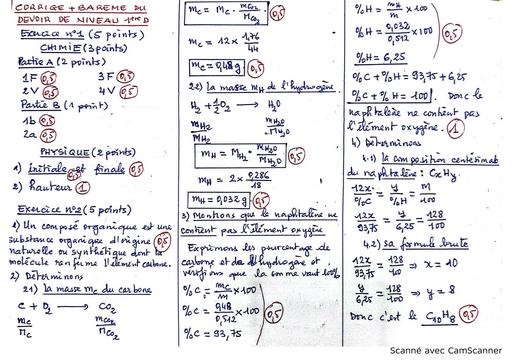 CORRIGE + BAREME DU
DEVOIR DE NIVEAU 1ère D
Exercice n°1 (5 points)
CHIMIE (3 points)
Partie A (2 points)
1F 0,5 3F 0,5
2V 0,5 4V 0,5
Partie B (1 point)
1b 0,5
2a 0,5
PHYSIQUE (2 points)
1) Initiale et finale 0,5
2) hauteur 1
Exercice n°2 (5 points)
1) Un composé organique est une
substance organique d'origine 0,5
naturelle ou synthétique dont la
molécule renferme l'élément carbone.
2) Déterminons
2.1) la masse mc du carbone
C + O₂ → CO₂
mc/Mc mCO₂/MCO₂
mc = Mc · mCO₂/MCO₂ 0,5
mc = 12 × 1,76/44
mc = 0,48 g 0,5
2.2) la masse mH de l'hydrogène
H₂ + 1/2 O₂ → H₂O
mH₂/MH₂ mH₂O/MH₂O
mH = MH₂ · mH₂O/MH₂O 0,5
mH = 2 × 0,286/18
mH = 0,032 g 0,5
3) Montrons que le naphtalène ne
contient pas l'élément oxygène
Exprimons les pourcentage de
carbone et de l'hydrogène et
vérifions que la somme vaut 100%
%C = mc/m × 100
%C = 0,48/0,512 × 100 0,5
%C = 93,75
%H = mH/m × 100
%H = 0,032/0,512 × 100 0,5
%H = 6,25
%C + %H = 93,75 + 6,25
%C + %H = 100. Donc le
naphtalène ne contient pas
l'élément oxygène. 1
4) Déterminons
4.1) la composition centésimale
du naphtalène : CxHy
12x/%C = y/%H = M/100
12x/93,75 = y/6,25 = 128/100
4.2) sa formule brute
12x/93,75 = 128/100 ⇒ x = 10
y/6,25 = 128/100 ⇒ y = 8
Donc c'est le C₁₀H₈ 0,5
Scanné avec CamScanner